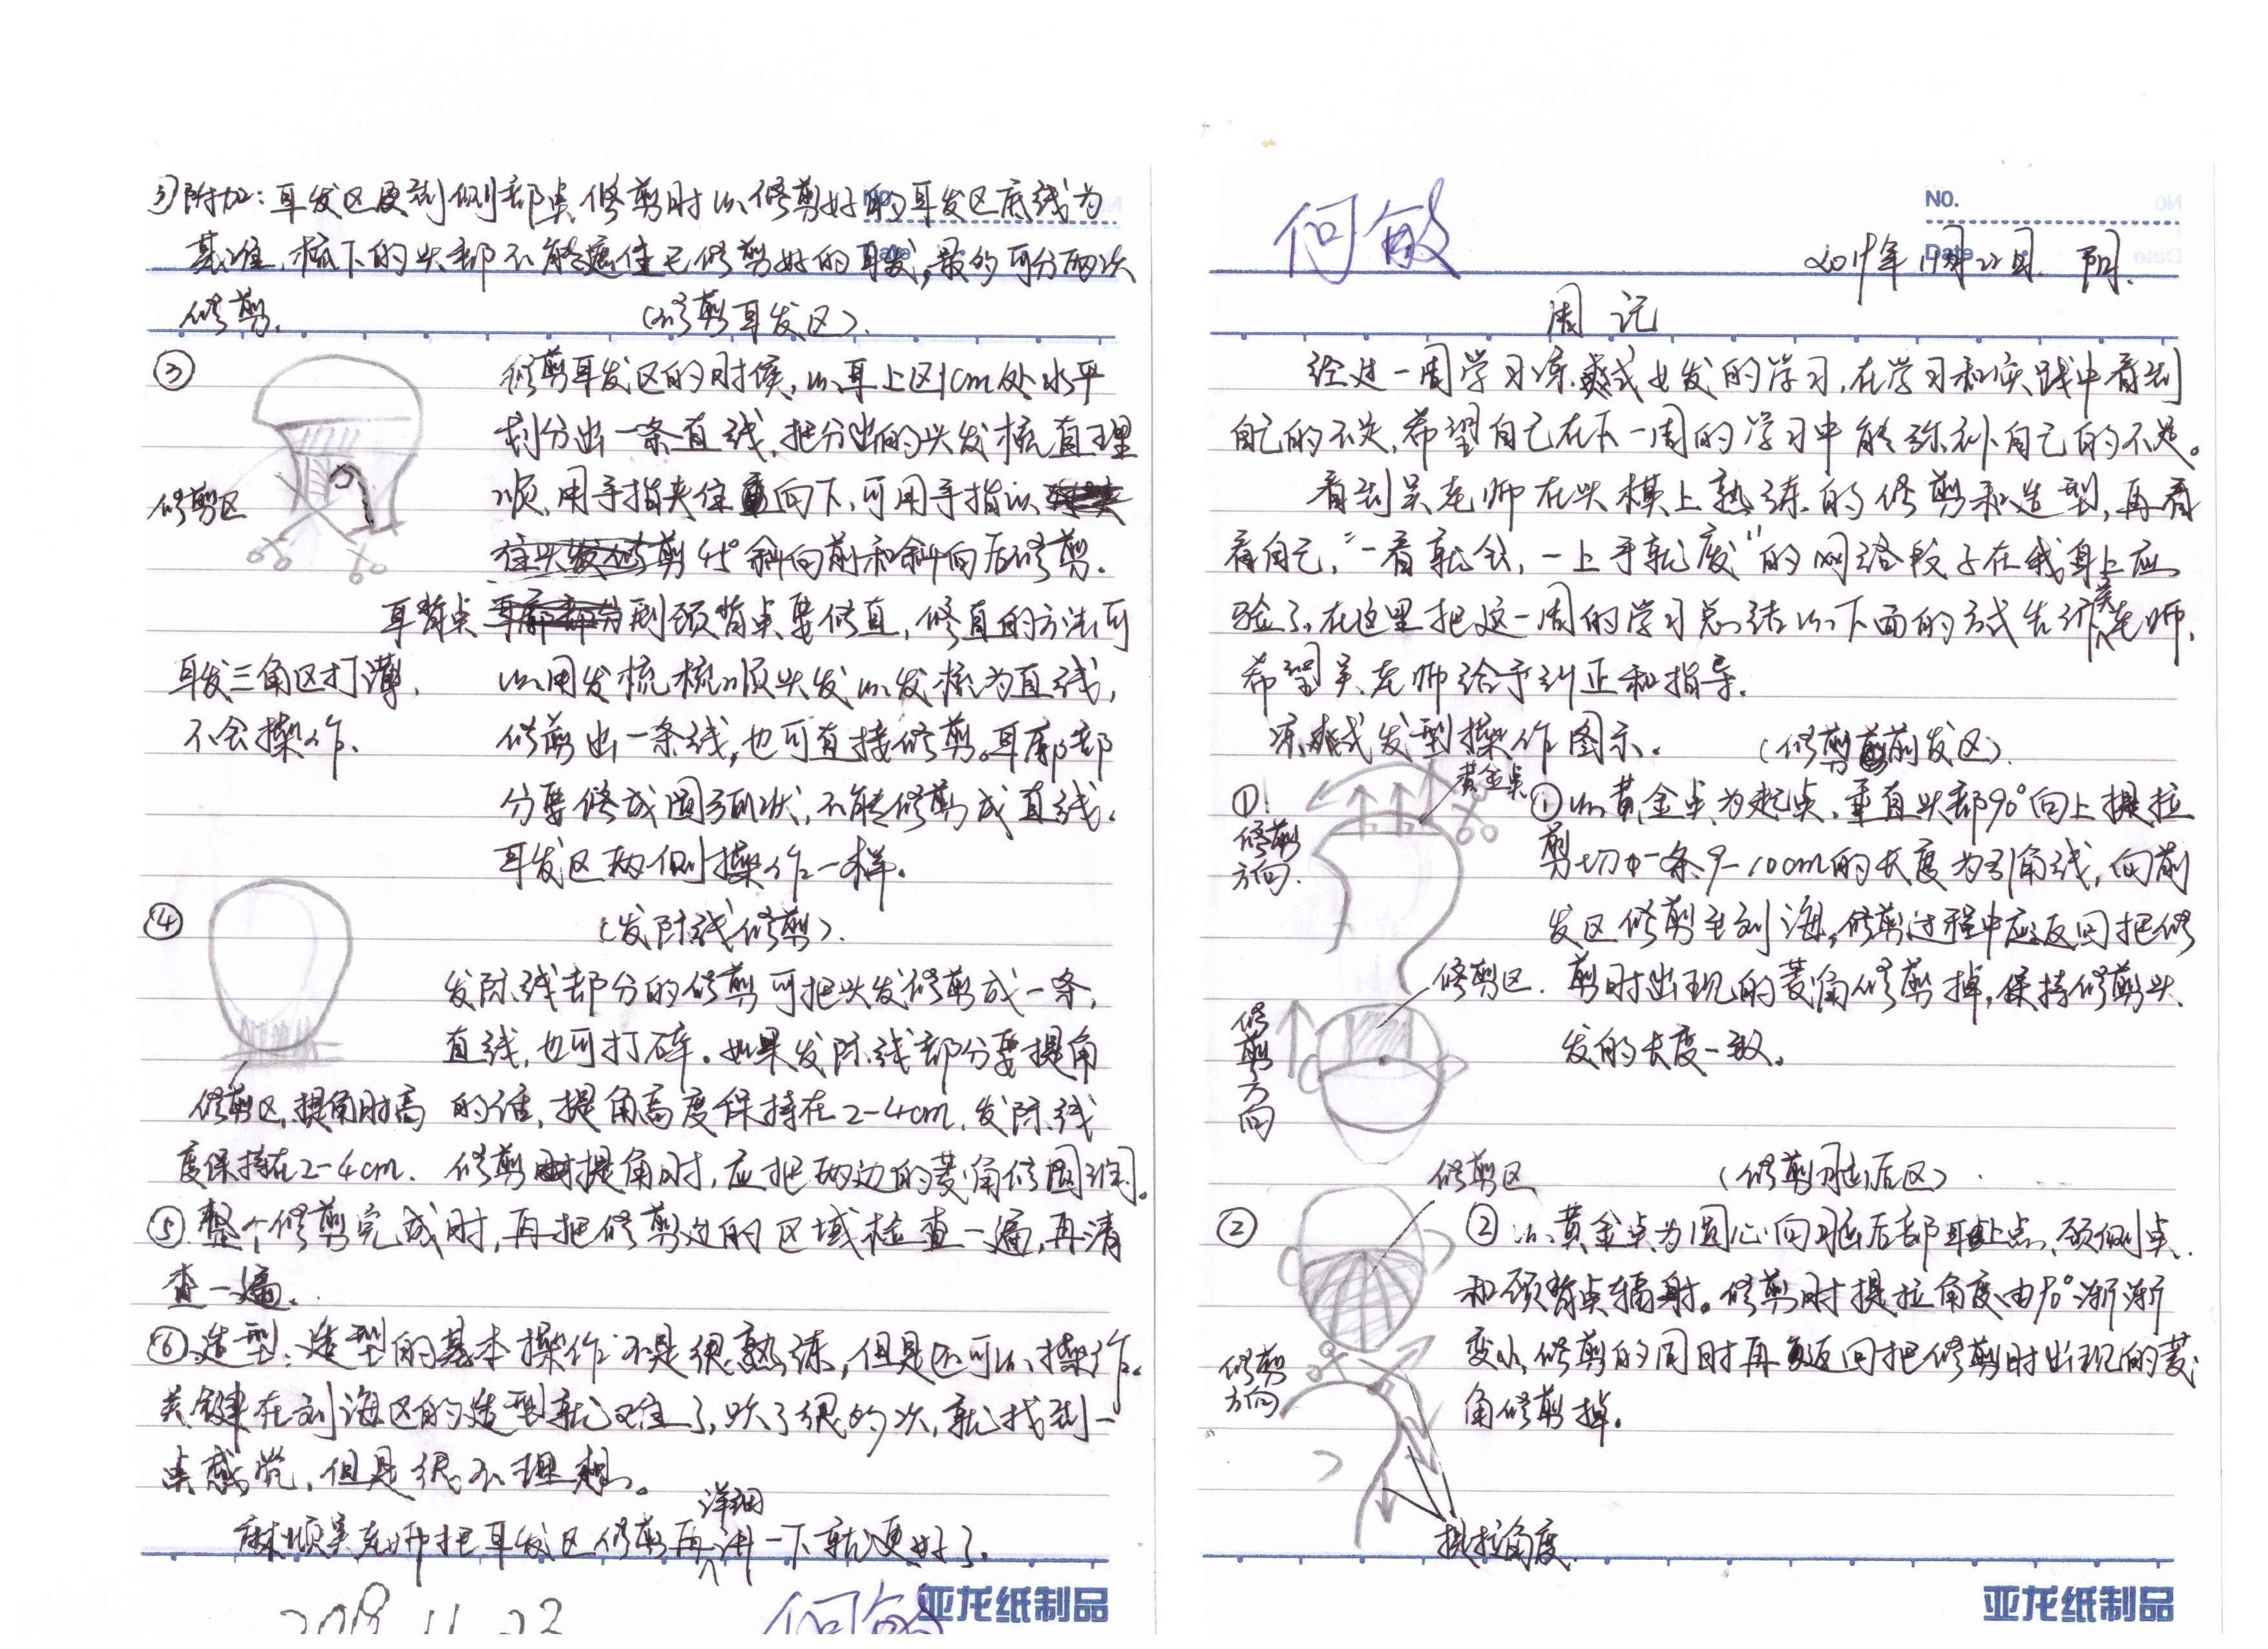 何敏
NO.
Date
2019年11月22日. 阴.
周记
经过一周学习凉爽式女发的学习,在学习和实践中看到
自己的不足,希望自己在下一周的学习中能弥补自己的不足。
看到吴老师在头模上熟练的修剪和造型,再看
看自己,"一看就会,一上手就废"的网络段子在我身上应
验了,在这里把这一周的学习总结以下面的方式告诉吴老师,
希望吴老师给予纠正和指导.
凉爽式发型操作图示. (修剪前发区).
黄金点
①
修剪
方向.
①以黄金点为起点,垂直头部90°向上提拉
剪切出一条9-10cm的长度为引角线,向前
发区修剪至刘海,修剪过程中应返回把修
剪时出现的菱角修剪掉,保持修剪头
发的长度一致。
修剪区.
修剪方向
修剪区
(修剪脑后区).
②
②以黄金点为圆心向脑后部耳上点、颈侧点
和颈背点辐射。修剪时提拉角度由90°渐渐
变小,修剪的同时再返回把修剪时出现的菱
角修剪掉.
修剪
方向
提拉角度.
亚龙纸制品
附加:耳发区更到侧部点修剪时以修剪好的耳发区底线为
基准,梳下的头部不能遮住已修剪好的耳发,最多可分两次
修剪. (修剪耳发区).
③
修剪区
修剪耳发区的时候,以耳上区1cm处水平
划分出一条直线,把分出的头发梳直理
顺,用手指夹住向下,可用手指以
剪45°斜向前和斜向后修剪.
耳背点到颈背点要修直,修直的方法可
以用发梳梳顺头发以发梳为直线,
修剪出一条线,也可直接修剪。耳廓部
分要修成圆弧状,不能修剪成直线.
耳发区两侧操作一样.
耳发三角区打薄,
不会操作.
④
(发际线修剪).
发际线部分的修剪可把头发修剪成一条
直线,也可打碎.如果发际线部分要提角
的话,提角高度保持在2-4cm.发际线
修剪提角时,应把两边的菱角修圆润。
修剪区,提角时高
度保持在2-4cm.
⑤整个修剪完成时,再把修剪过的区域检查一遍,再清
查一遍.
⑥造型:造型的基本操作不是很熟练,但是还可以操作.
关键在刘海区的造型就难住了,吹了很多次,就找到一
点感觉,但是很不理想。
麻烦吴老师把耳发区修剪再详细讲一下就更好了.
何敏
亚龙纸制品